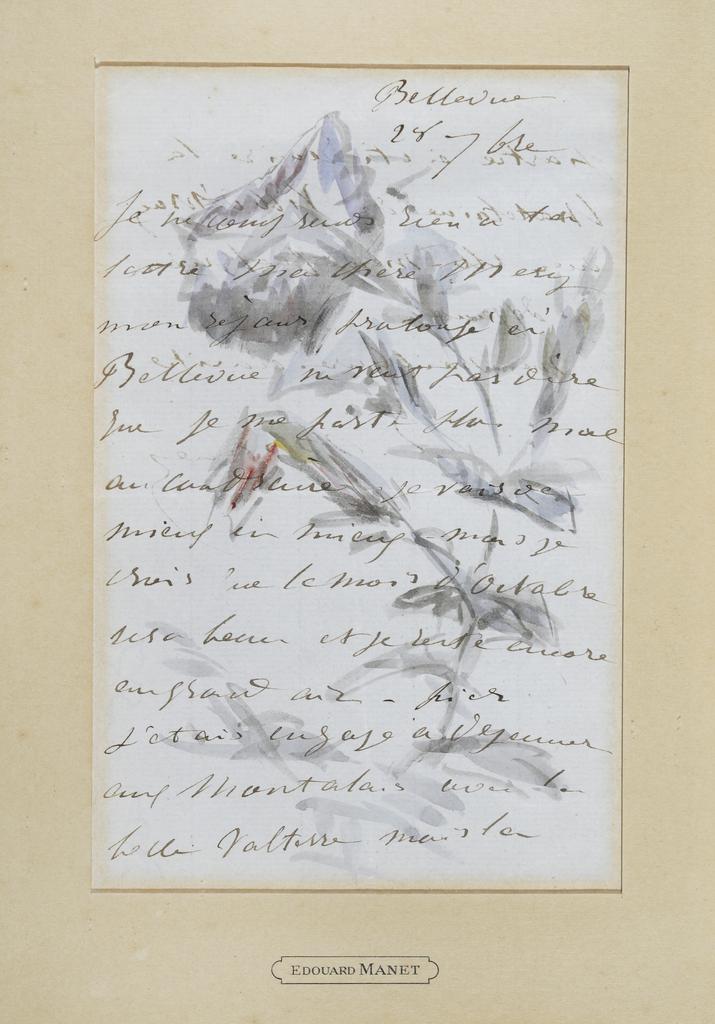 Bellevue
28 7bre
Je ne comprends rien à ta
lettre ma chère Mery
mon séjour prolongé à
Bellevue ne veut pas dire
que je me porte plus mal
au contraire je vais de
mieux en mieux - mais je
crois que le mois d'Octobre
sera beau et je reste encore
au grand air - hier
j'étais engagé à déjeuner
aux Montalais avec la
belle Valtesse mais la
EDOUARD MANET